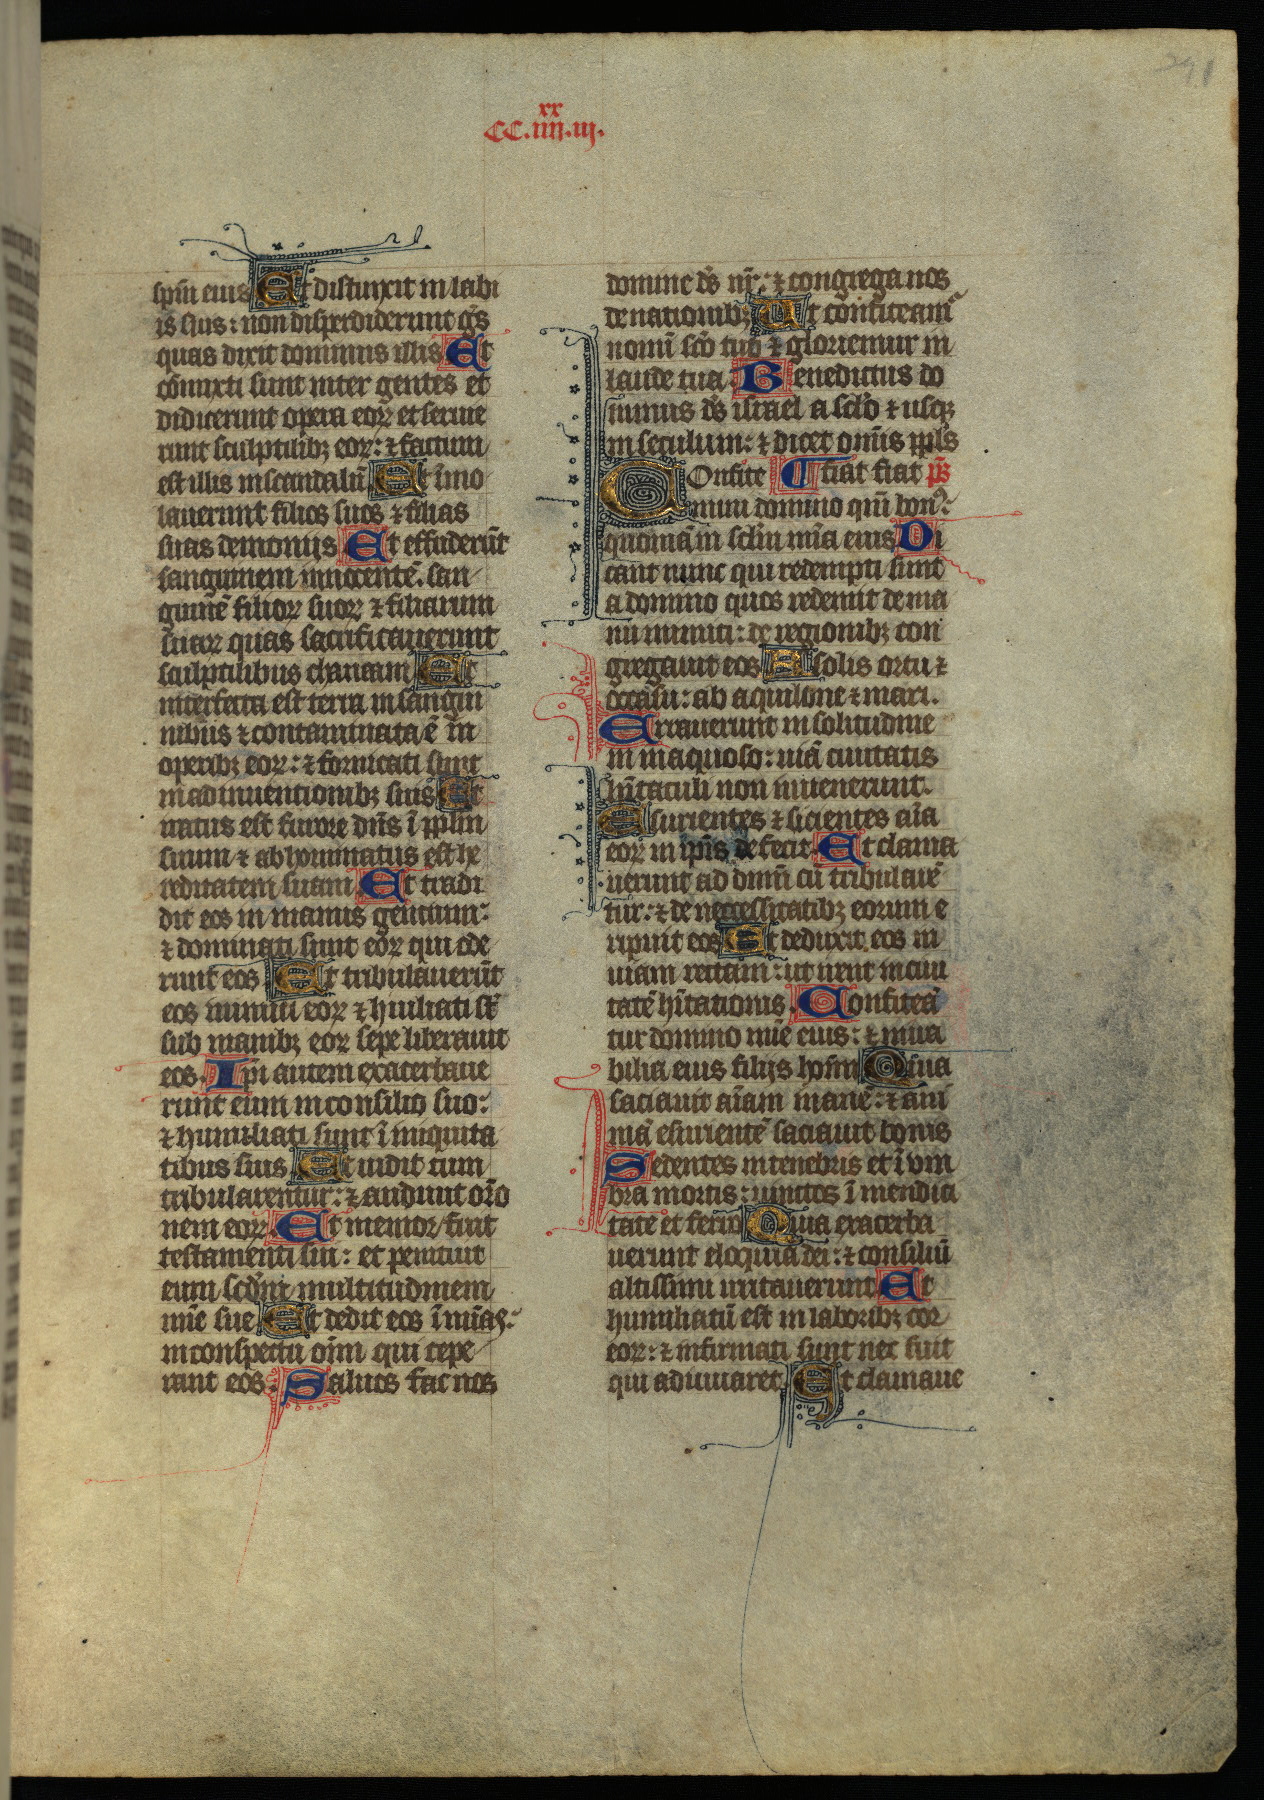 291
xx
CC.iiii.iij.
sp̄m eius Et distinxit in labi
is suis: non disperdiderunt gēs
quas dixit dominus illis Et
cōmixti sunt inter gentes et
didicerunt opera eoꝝ et serui e
runt sculptilibꝫ eoꝝ: ⁊ factum
est illis in scandalū Et īmo
lauerunt filios suos ⁊ filias
suas demonijs Et effuderūt
sanguinem innocentē. san
guinē filioꝝ suoꝝ ⁊ filiarum
suaꝝ quas sacrificauerunt
sculptilibus chanaam Et
interfecta est terra in sangui
nibus ⁊ contaminata ē in
operibꝫ eoꝝ: ⁊ fornicati sunt
in adinuentionibꝫ suis Et
iratus est furore dn̄s ī pp̄lm
suum ⁊ abhominatus est he
reditatem suam Et tradi
dit eos in manus gentium:
⁊ dominati sunt eoꝝ qui ode
runt eos Et tribulauerūt
eos inimici eoꝝ ⁊ huiliati sūt
sub manibꝫ eoꝝ sepe liberauit
eos. Ipi autem exacerbaue
runt eum in consilio suo:
⁊ humiliati sunt ī iniquita
tibus suis Et uidit cum
tribularentur: ⁊ audiuit orō
nem eoꝝ Et memor fuit
testamenti sui: et penituit
eum scd̄m multitudinem
mīe sue Et dedit eos ī mīas:
in conspectu oīm qui cepe
rant eos. Saluos fac nos
domine dē nr̄: ⁊ congrega nos
de nationibꝫ Ut confiteam̄
nomī scō tuo ⁊ gloriemur in
laude tua Benedictus do
minus dē israel a sclo ⁊ usqꝫ
in seculum: ⁊ dicet omīs ppls
Onfite fiat fiat pˢ
mini domino qm̄ bonꝰ:
quoniā in sclm mīa eius Di
cant nunc qui redempti sunt
a domino quos redemit de ma
nu inimici: de regionibꝫ con
gregauit eos A solis ortu ⁊
occasu: ab aquilone ⁊ mari.
Errauerunt in solitudine
in inaquoso: uiā ciuitatis
hītaculi non inuenerunt.
Esurientes ⁊ sicientes aīa
eoꝝ in ipīs defecit. Et clama
uerunt ad dnm̄ cū tribularē
tur: ⁊ de neccessitatibꝫ eorum e
ripuit eos Et deduxit eos in
uiam rectam: ut irent in ciui
tatē hītationis. Confiteā
tur domino mīe eius: ⁊ mīra
bilia eius filijs hoīm Quia
saciauit aīam inanē: ⁊ ani
mā esurientē saciauit bonis
Sedentes in tenebris et ī vm
bra mortis: uinctos ī mendici
tate et ferro Quia exacerba
uerunt eloquia dei: ⁊ consiliū
altissimi irritauerunt Et
humiliatū est in laboribꝫ cor
eoꝝ: ⁊ infirmati sunt nec fuit
qui adiuuaret. Et clamaue